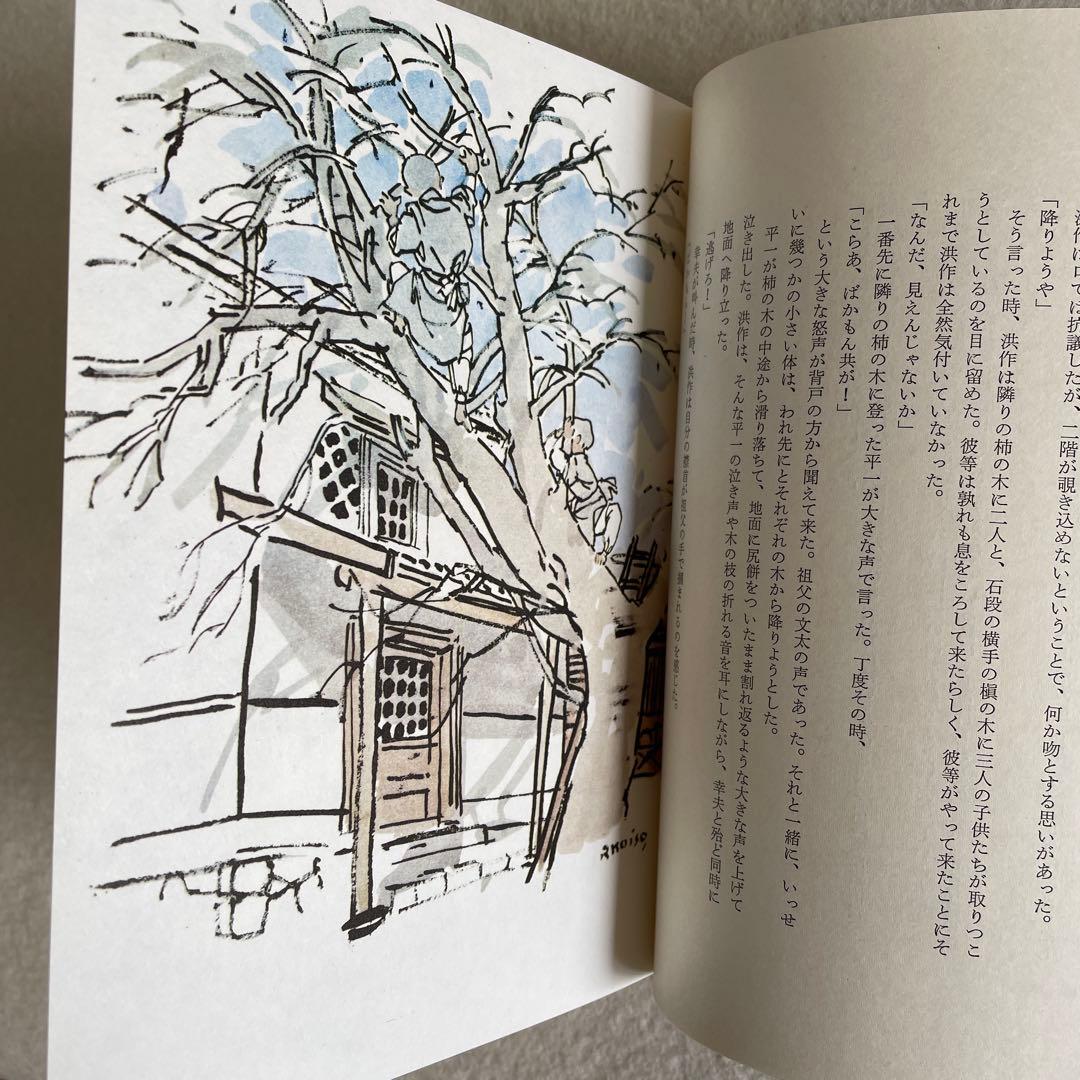 洪作は口では抗議したが、二階が覗き込めないということで、何か吻とする思いがあった。
「降りようや」
そう言った時、洪作は隣りの柿の木に二人と、石段の横手の槇の木に三人の子供たちが取りつこ
うとしているのを目に留めた。彼等は孰れも息をころして来たらしく、彼等がやって来たことにそ
れまで洪作は全然気付いていなかった。
「なんだ、見えんじゃないか」
一番先に隣りの柿の木に登った平一が大きな声で言った。丁度その時、
「こらあ、ばかもん共が！」
という大きな怒声が背戸の方から聞えて来た。祖父の文太の声であった。それと一緒に、いっせ
いに幾つかの小さい体は、われ先にとそれぞれの木から降りようとした。
平一が柿の木の中途から滑り落ちて、地面に尻餅をついたまま割れ返るような大きな声を上げて
泣き出した。洪作は、そんな平一の泣き声や木の枝の折れる音を耳にしながら、幸夫と殆ど同時に
地面へ降り立った。
「逃げろ！」
幸夫が叫んだ時、洪作は自分の襟首が祖父の手で掴まれるのを感じた。
R KOISO